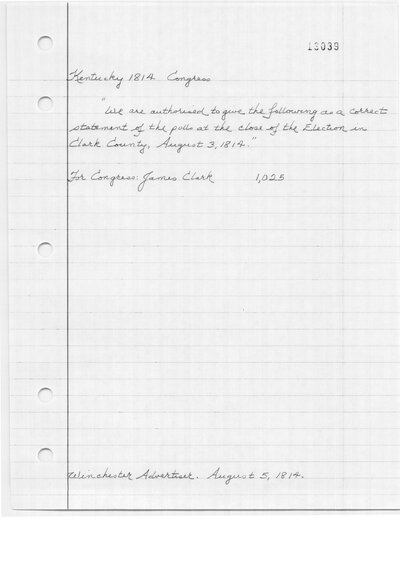 13039
Kentucky 1814 Congress
"We are authorised to give the following as a correct
statement of the polls at the close of the Election in
Clark County, August 3, 1814."
For Congress: James Clark 1,025
Winchester Advertiser. August 5, 1814.